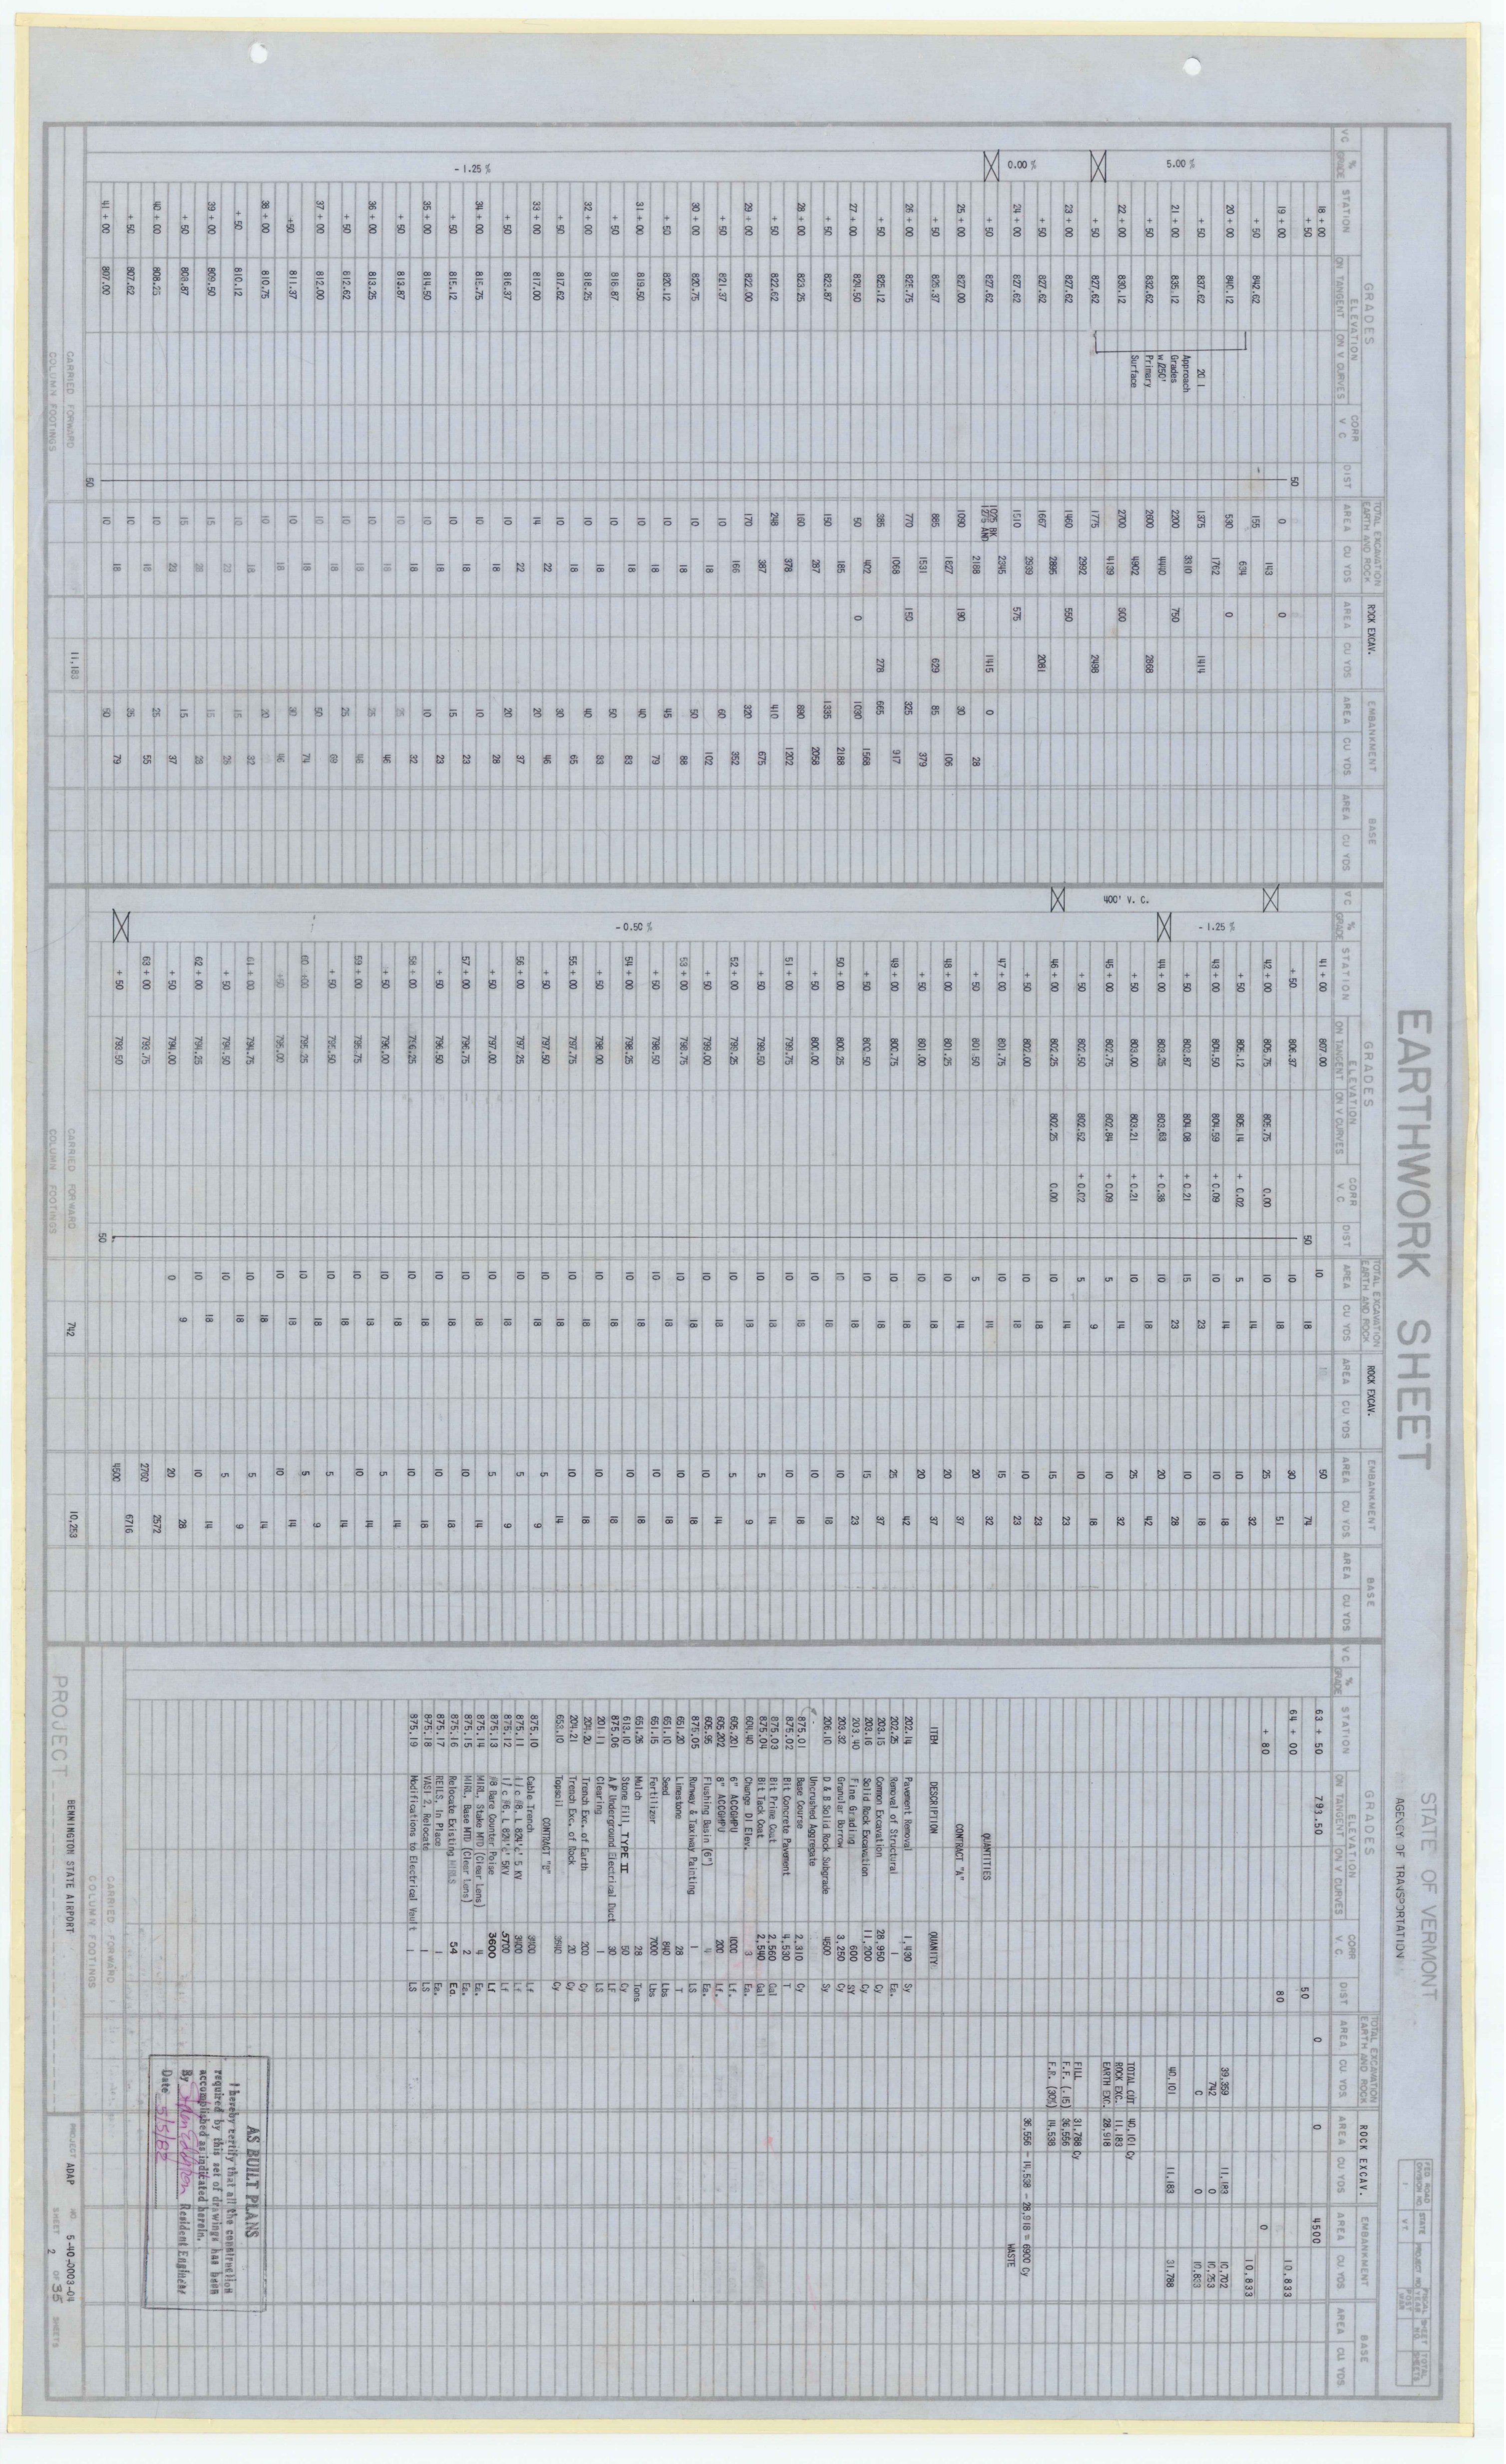 EARTHWORK SHEET
STATE OF VERMONT
AGENCY OF TRANSPORTATION
FED ROAD DIVISION NO. STATE PROJECT NO. FISCAL YEAR SHEET NO. TOTAL SHEETS
1 VT.
GRADES TOTAL EXCAVATION EARTH AND ROCK ROCK EXCAV. EMBANKMENT BASE
VC % GRADE STATION ELEVATION ON TANGENT ON V CURVES CORR V C DIST AREA CU YDS AREA CU YDS AREA CU YDS AREA CU YDS
5.00 %
0.00 %
- 1.25 %
18 + 00
+ 50 50
19 + 00 0 0
143
+ 50 842.62 155
634
20 + 00 840.12 530 0
1762
+ 50 837.62 1375 1414
3310
21 + 00 835.12 2200 750
4440
+ 50 832.62 2600 2868
4902
22 + 00 830.12 2700 800
4139
+ 50 827.62 1775 2498
2992
23 + 00 827.62 1460 550
2895
+ 50 827.62 1667 2081
2939
24 + 00 827.62 1510 575
2345
+ 50 827.62 1025 BK 1275 AHD 1415 0
2188 28
25 + 00 827.00 1090 190 30
1627 106
+ 50 826.37 885 629 85
1531 379
26 + 00 825.75 770 150 325
1068 917
+ 50 825.12 385 278 665
402 1568
27 + 00 824.50 50 0 1030
185 2188
+ 50 823.87 150 1335
287 2058
28 + 00 823.25 160 890
378 1202
+ 50 822.62 248 410
387 675
29 + 00 822.00 170 320
166 352
+ 50 821.37 10 60
18 102
30 + 00 820.75 10 50
18 88
+ 50 820.12 10 45
18 79
31 + 00 819.50 10 40
18 83
+ 50 818.87 10 50
18 83
32 + 00 818.25 10 40
18 65
+ 50 817.62 10 30
22 46
33 + 00 817.00 14 20
22 37
+ 50 816.37 10 20
18 28
34 + 00 815.75 10 10
18 23
+ 50 815.12 10 15
18 23
35 + 00 814.50 10 10
18 32
+ 50 813.87 10 25
18 46
36 + 00 813.25 10 25
18 46
+ 50 812.62 10 25
18 69
37 + 00 812.00 10 50
18 74
+50 811.37 10 30
18 46
38 + 00 810.75 10 20
18 32
+ 50 810.12 10 15
23 28
39 + 00 809.50 15 15
28 28
+ 50 808.87 15 15
23 37
40 + 00 808.25 10 25
18 55
+ 50 807.62 10 35
18 79
41 + 00 807.00 50 10 50
20:1 Approach Grades w/250' Primary Surface
CARRIED FORWARD 11,183
COLUMN FOOTINGS
GRADES TOTAL EXCAVATION EARTH AND ROCK ROCK EXCAV. EMBANKMENT BASE
VC % GRADE STATION ELEVATION ON TANGENT ON V CURVES CORR V C DIST AREA CU YDS AREA CU YDS AREA CU YDS AREA CU YDS
- 1.25 %
400' V. C.
- 0.50 %
41 + 00 807.00 10 50
50 18 74
+ 50 806.37 10 30
18 51
42 + 00 805.75 805.75 0.00 10 25
14 32
+ 50 805.12 805.14 + 0.02 5 10
14 18
43 + 00 804.50 804.59 + 0.09 10 10
23 18
+ 50 803.87 804.08 + 0.21 15 10
23 28
44 + 00 803.25 803.63 + 0.38 10 20
18 42
+ 50 803.00 803.21 + 0.21 10 25
14 32
45 + 00 802.75 802.84 + 0.09 5 10
9 18
+ 50 802.50 802.52 + 0.02 5 10
14 23
46 + 00 802.25 802.25 0.00 10 15
18 23
+ 50 802.00 10 10
18 23
47 + 00 801.75 10 15
14 32
+ 50 801.50 5 20
14 37
48 + 00 801.25 10 20
18 37
+ 50 801.00 10 20
18 42
49 + 00 800.75 10 25
18 37
+ 50 800.50 10 15
18 23
50 + 00 800.25 10 10
18 18
+ 50 800.00 10 10
18 18
51 + 00 799.75 10 10
18 14
+ 50 799.50 10 5
18 9
52 + 00 799.25 10 5
18 14
+ 50 799.00 10 10
18 18
53 + 00 798.75 10 10
18 18
+ 50 798.50 10 10
18 18
54 + 00 798.25 10 10
18 18
+ 50 798.00 10 10
18 18
55 + 00 797.75 10 10
18 14
+ 50 797.50 10 5
18 9
56 + 00 797.25 10 5
18 9
+ 50 797.00 10 5
18 14
57 + 00 796.75 10 10
18 18
+ 50 796.50 10 10
18 18
58 + 00 796.25 10 10
18 14
+ 50 796.00 10 5
18 14
59 + 00 795.75 10 10
18 14
+ 50 795.50 10 5
18 9
60 + 00 795.25 10 5
18 14
+50 795.00 10 10
18 14
61 + 00 794.75 10 5
18 9
+ 50 794.50 10 5
18 14
62 + 00 794.25 10 10
9 28
+ 50 794.00 0 20
2572
63 + 00 793.75 2760
6716
+ 50 793.50 50 4500
CARRIED FORWARD 742 10,253
COLUMN FOOTINGS
GRADES TOTAL EXCAVATION EARTH AND ROCK ROCK EXCAV. EMBANKMENT BASE
VC % GRADE STATION ELEVATION ON TANGENT ON V CURVES CORR V.C. DIST AREA CU YDS AREA CU YDS AREA CU YDS AREA CU YDS
63 + 50 793.50 0 0 4500
50
64 + 00 10,833
80
+ 80 0
10,833
39,359 11,183 10,702
742 0 10,253
0 0 10,833
40,101 11,183 31,788
TOTAL CUT 40,101 Cy
ROCK EXC. 11,183
EARTH EXC. 28,918
FILL 31,788 Cy
F.F. (.15) 36,556
F.R. (30%) 14,538
36,556 - 14,538 - 28,918 = 6900 Cy
WASTE
QUANTITIES
CONTRACT "A"
ITEM DESCRIPTION QUANTITY
202.14 Pavement Removal 1,430 Sy
202.25 Removal of Structural 1 Ea.
203.15 Common Excavation 28,950 Cy
203.16 Solid Rock Excavation 11,200 Cy
203.40 Fine Grading 600 SY
203.32 Granular Borrow 3,250 Cy
206.10 D & B Solid Rock Subgrade 4500 Sy
Uncrushed Aggregate
875.01 Base Course 2,310 Cy
875.02 Bit Concrete Pavement 4,530 T
875.03 Bit Prime Coat 2,560 Gal
875.04 Bit Tack Coat 2,540 Gal
604.40 Change DI Elev. 3 Ea.
605.201 6" ACCGMPU 1000 Lf.
605.202 8" ACCGMPU 200 Lf.
605.95 Flushing Basin (6") 4 Ea.
875.05 Runway & Taxiway Painting 1 LS
651.20 Limestone 28 T
651.10 Seed 840 Lbs
651.15 Fertilizer 7000 Lbs
651.26 Mulch 28 Tons
613.10 Stone Fill, TYPE II 50 Cy
875.06 A/P Underground Electrical Duct 30 LF
201.11 Clearing 1 LS
204.20 Trench Exc. of Earth 200 Cy
204.21 Trench Exc. of Rock 20 Cy
653.10 Topsoil 3540 Cy
CONTRACT "B"
875.10 Cable Trench 3400 Lf
875.11 1/c #8, L 824'c' 5 KV 3400 Lf
875.12 1/ c #6, L 824'c' 5KV 5700 Lf
875.13 #8 Bare Counter Poise 3600 Lf
875.14 MIRL, Stake MTD (Clear Lens) 4 Ea.
875.15 MIRL, Base MTD (Clear Lens) 2 Ea.
875.16 Relocate Existing MIRLS 54 Ea
875.17 REILS, In Place 1 Ea.
875.18 VASI 2, Relocate 1 LS
875.19 Modifications to Electrical Vault 1 LS
AS BUILT PLANS
I hereby certify that all the construction
required by this set of drawings has been
accomplished as indicated herein.
By Resident Engineer
Date 5/5/82
CARRIED FORWARD
COLUMN FOOTINGS
PROJECT BENNINGTON STATE AIRPORT
PROJECT ADAP NO. 5-40-0003-04
SHEET 2 OF 35 SHEETS